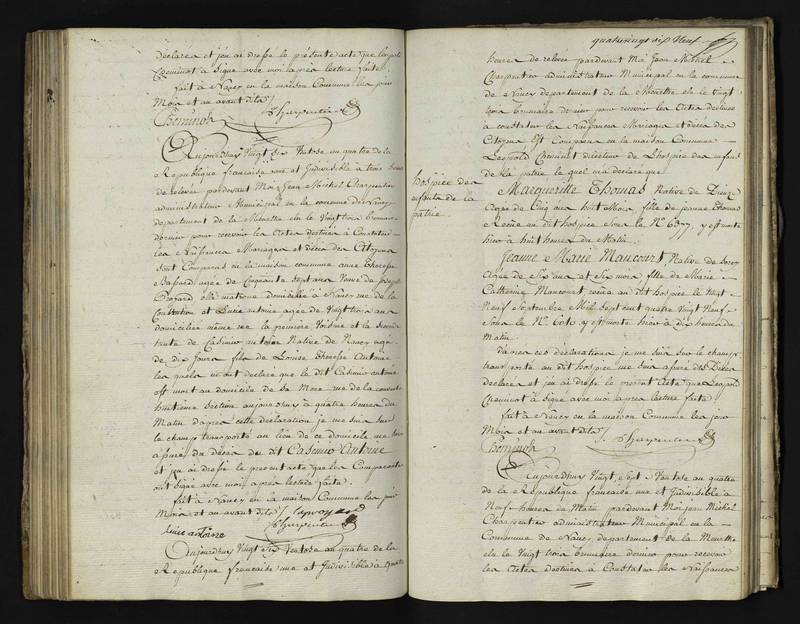 declarée et j'ai dressé le présent acte que Leopold
Cheminot a signé avec moi après lecture faite.
fait à Nancy en la maison Commune les jour
Mois et an avant dits
Cheminot Charpentier
Aujourdhuy Vingt six Ventose an quatre de la
République française une et Indivisible à trois heures
de relevée pardevant Moi Jean Michel Charpentier
administrateur Municipal en la commune de Nancy
departement de la Meurthe elu le Vingt trois brumaire
dernier pour recevoir les Actes destinés à Constater
les Naissances Mariages et décès des Citoyens
sont Comparus en la maison commune anne therese
agée de Cinquante Sept ans Veuve de Joseph
domiciliée à Nancy rue de la
Constitution et Lucie antoine agée de Vingt trois ans
domiciliée même rue la premiere Voisine et la seconde
tante de Casimir antoine Native de Nancy agé
de dix Jours fils de Louise therese Antoine
les quels m'ont déclaré que le dit Casimir antoine
est mort au domicile de sa Mere rue de la
huitieme Section aujourdhuy à quatre heures du
Matin d'après cette déclaration je me suis sur
le champ transporté au lieu de ce domicile me suis
assuré du décès du dit Casimir Antoine
et j'ai dressé le present acte que les Comparants
ont signé avec moi après lecture faite.
fait à Nancy en la maison Commune les jour
Mois et an avant dits
lucie antoine Charpentier
Aujourdhuy Vingt six Ventose an quatre de la
République française une et Indivisible à quatre
quatrevingt dix Neuf
heures de relevée pardevant Moi Jean Michel
Charpentier administrateur Municipal en la commune
de Nancy departement de la Meurthe elu le Vingt
trois brumaire dernier pour recevoir les Actes destinés
à constater les Naissances Mariages et décès des
Citoyens Est Comparu en la maison Commune
Léopold Cheminot directeur de L'hospice des enfants
de la patrie le quel m'a déclaré que
hospice des
enfants de la
patrie
Margueritte Thomas Native de Dieuze
agée de Cinq ans huit Mois fille de jeanne thomas
Reçue au dit hospice sous le No 6077, y est morte
hier à huit heures du Matin.
Jeanne Marie Maucourt, Native de
Agée de Six ans et six mois fille de Marie
Catherine Maucourt, reçue au dit hospice le Vingt
Neuf Septembre Mil Sept cent quatre Vingt Neuf
sous le No 6010 y est morte hier à dix heures du
Matin
d'après ces déclarations je me suis sur le champ
transporté au dit hospice me suis assuré des Décès
declarés et j'ai dressé le present Acte que Léopold
Cheminot à signé avec moi après lecture faite
fait à Nancy en la maison Commune les jour
Mois et an avant dits
Cheminot Charpentier
Aujourdhuy Vingt Sept Ventose an quatre
de la République française une et Indivisible à
Neuf heures du Matin pardevant Moi jean Michel
Charpentier administrateur Municipal en la
Commune de Nancy departement de la Meurthe
elu le Vingt trois brumaire dernier pour recevoir
les Actes destinés à Constater les Naissances